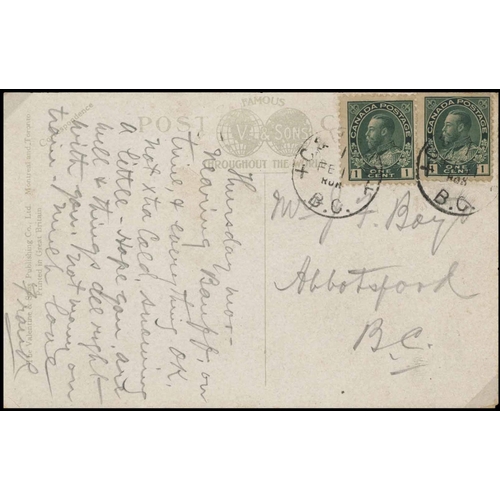 FAMOUS
POST CARD
V. & SONS
THROUGHOUT THE WORLD
Valentine & Sons Publishing Co., Ltd. Montreal and Toronto
Printed in Great Britain
CANADA POSTAGE
1 ONE CENT 1
CANADA POSTAGE
1 ONE CENT 1
FE
B.C.
B.C.
Thursday mor-
Nearing Banff, on
time, & everything OK.
Not xtra Cold, snowing
a little - Hope you are
well & things all right
with you. Not many on
train. Much love
Mr J F. Boyd
Abbotsford
B.C.